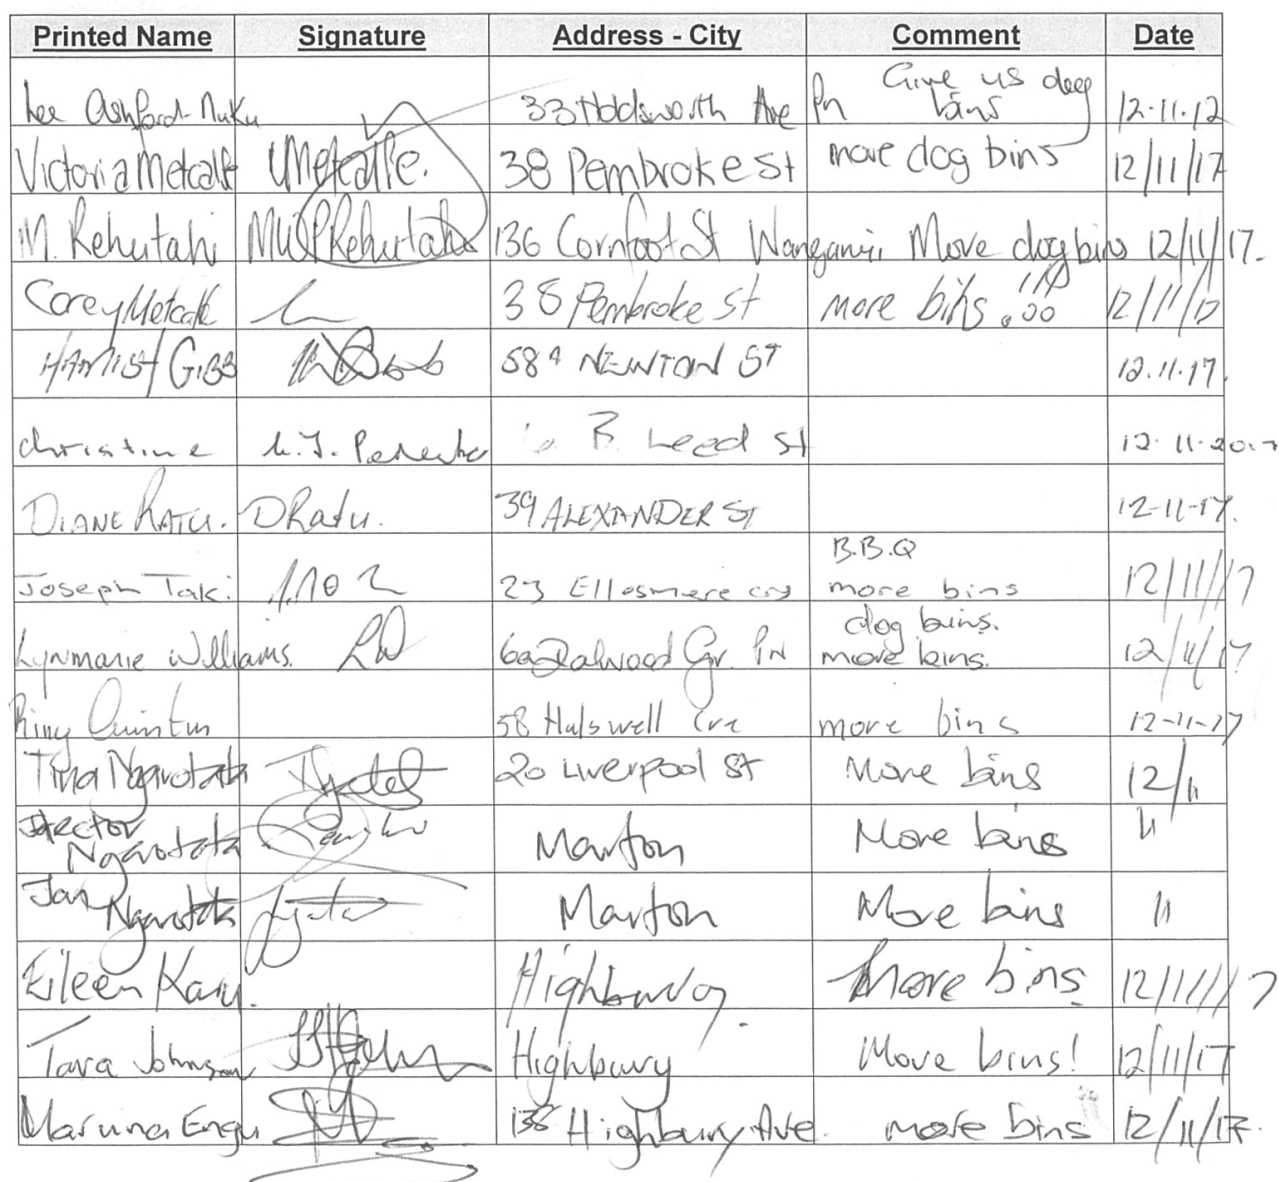 Printed Name Signature Address - City Comment Date
Lee Ashford-Nuku 33 Holdsworth Ave Pn Give us doog bins 12-11-12
Victoria Metcalfe VMetcalfe. 38 Pembroke St more dog bins 12/11/17
M. Rehutahi Rehutahi 136 Cornfoot St Wanganui More dog bins 12/11/17.
Corey Metcalfe 38 Pembroke St more bins !!! 12/11/17
HAMISH GIBB 58A NEWTON ST 12.11.17.
christine St 12-11-2017
DIANE RATU. DRatu. 39 ALEXANDER ST 12-11-17.
Joseph Taki 23 Ellesmere cres B.B.Q more bins 12/11/17
Lynmarie Williams. LW 6a Dalwood Gr. PN dog bins. more bins. 12/11/17
58 Halswell Cre more bins 12-11-17
Tina Ngarotata 20 Liverpool St More bins 12/11
Hector Ngarotata Marton More bins 11
Jan Ngarotata Marton More bins 11
Eileen Karu. Highbury more bins 12/11/17
Tara Johnson Highbury More bins! 12/11/17
Maruna Engu 138 Highbury Ave. more bins 12/11/17.